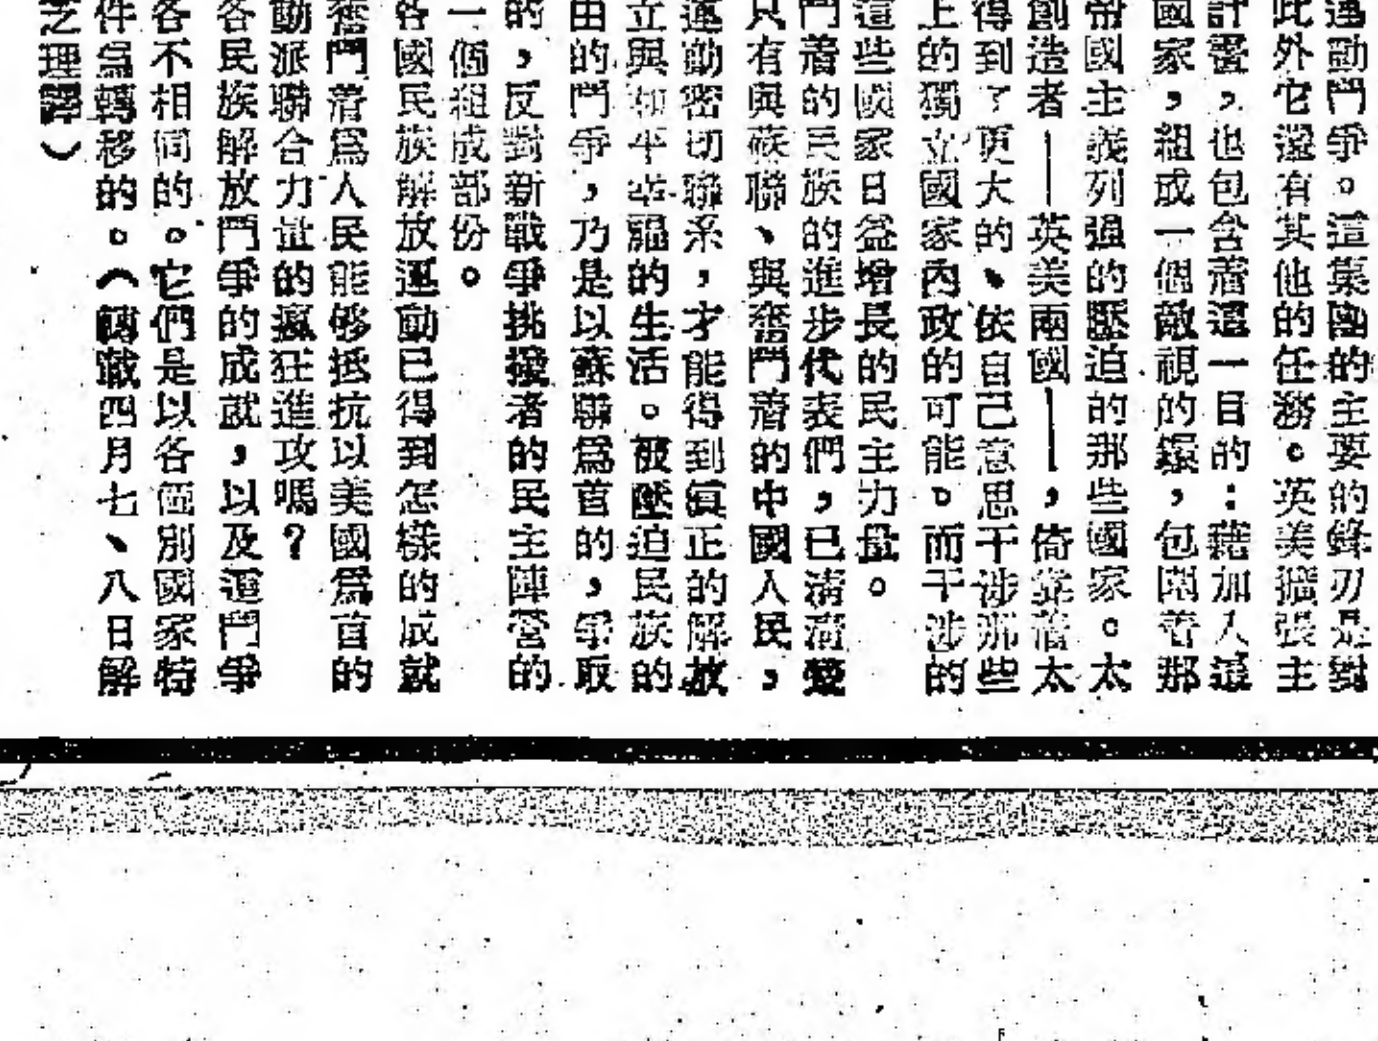 運動鬥爭。這集團的主要的鋒刃是對
此外它還有其他的任務。英美擴張主
計劃,也包含着這一目的:藉加入這
國家,組成一個敵視的環,包圍着那
帝國主義列强的壓迫的那些國家。太
創造者——英美兩國——,倚靠着太
得到了更大的、依自己意思干涉那些
上的獨立國家內政的可能。而干涉的
這些國家日益增長的民主力量。
鬥着的民族的進步代表們,已清清楚
只有與蘇聯、與奮鬥着的中國人民,
運動密切聯系,才能得到眞正的解放
立與和平幸福的生活。被壓迫民族的
由的鬥爭,乃是以蘇聯爲首的,爭取
的,反對新戰爭挑撥者的民主陣營的
一個組成部份。
各國民族解放運動已得到怎樣的成就
奮鬥着爲人民能够抵抗以美國爲首的
動派聯合力量的瘋狂進攻嗎?
各民族解放鬥爭的成就,以及這鬥爭
各不相同的。它們是以各個別國家特
件爲轉移的。(轉載四月七、八日解
之理譯)